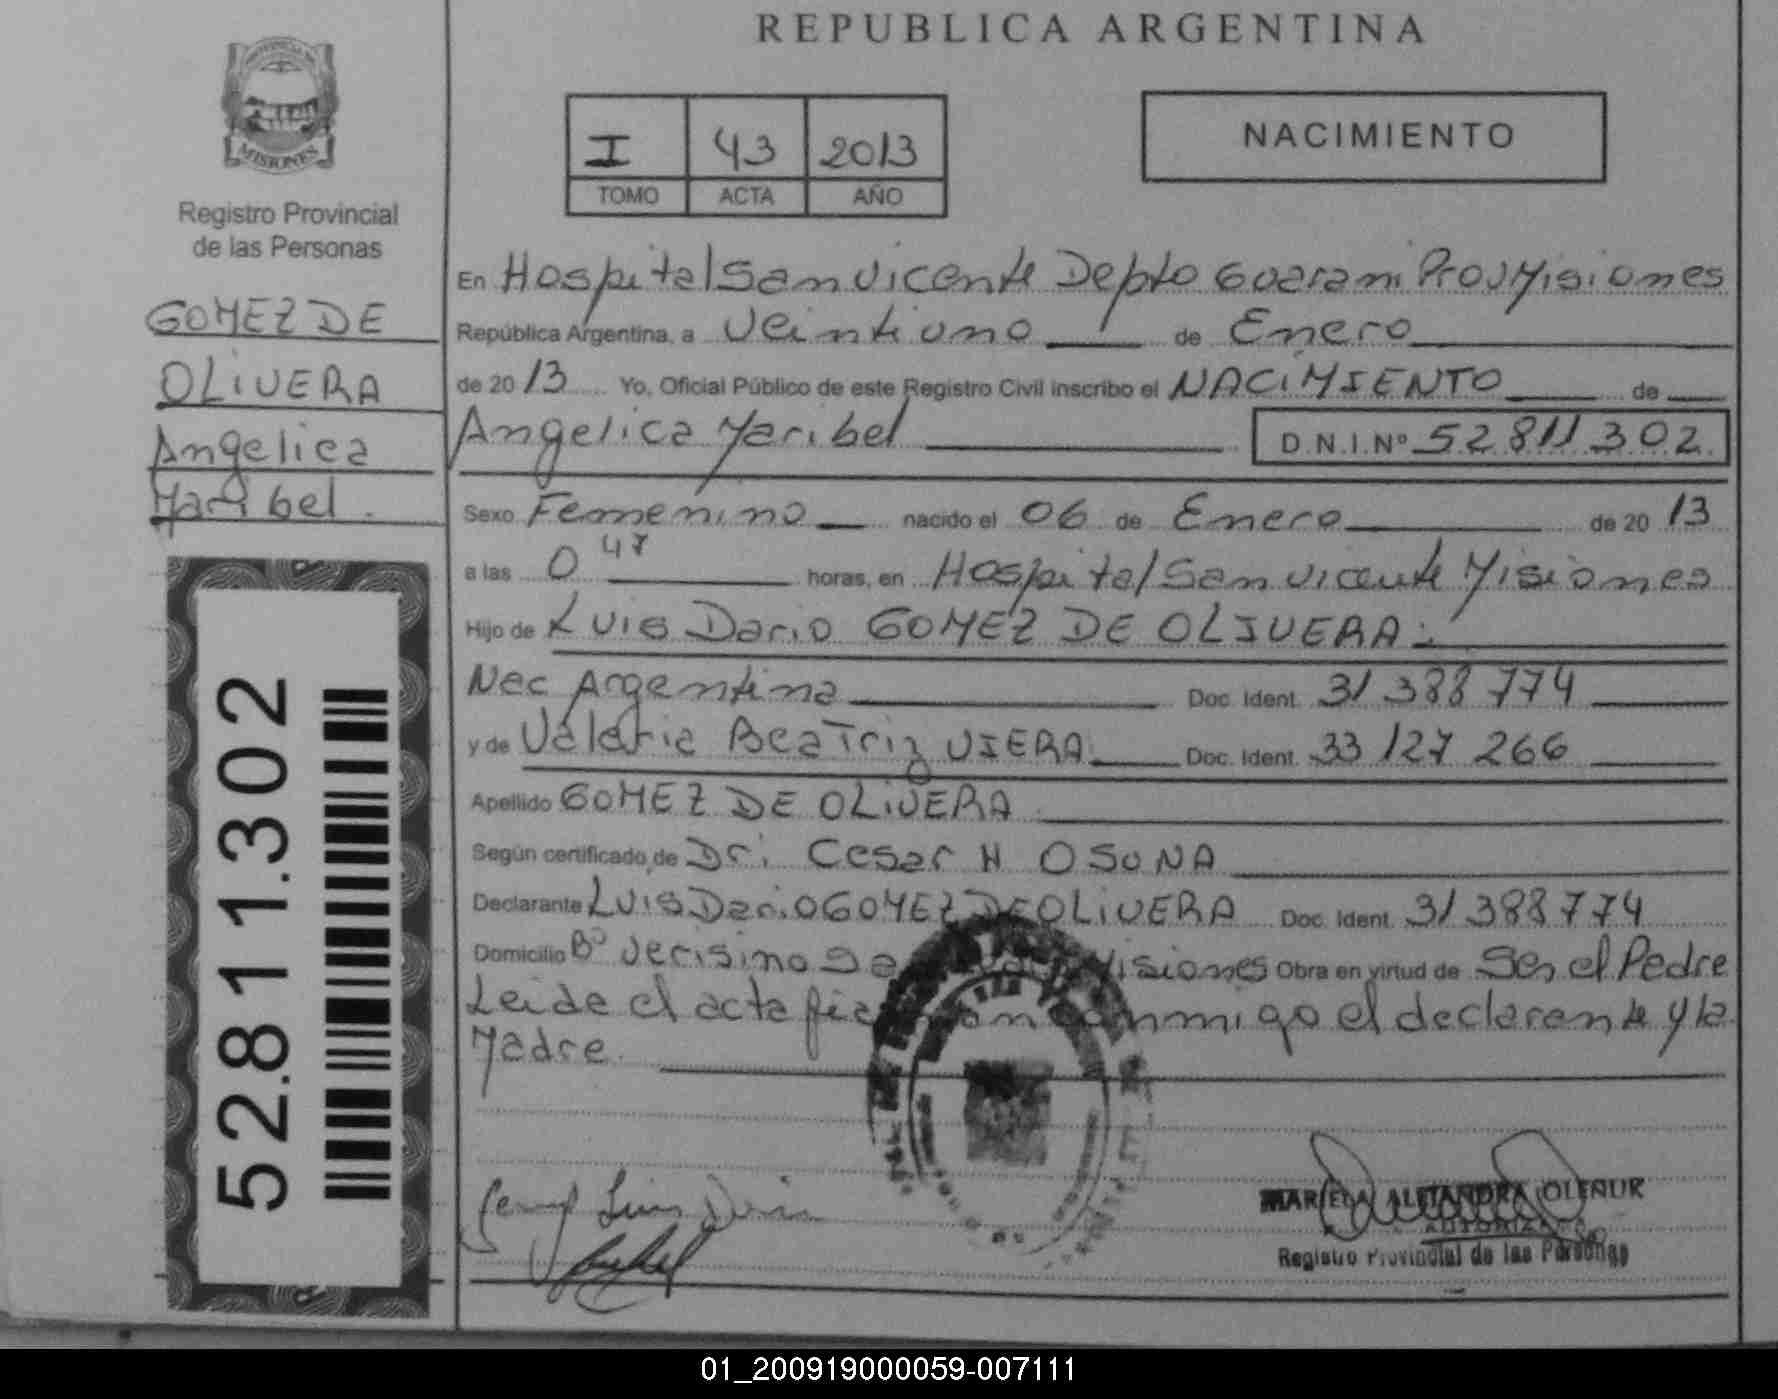 REPUBLICA ARGENTINA
PROVINCIA DE
MISIONES
Registro Provincial
de las Personas
GOMEZ DE
OLIVERA
Angelica
Maribel.
52.811.302
I 43 2013
TOMO ACTA AÑO
NACIMIENTO
En Hospital San Vicente Depto Guarani Prov Misiones
República Argentina, a Veintiuno de Enero
de 2013 Yo, Oficial Público de este Registro Civil inscribo el NACIMIENTO de
Angelica Maribel D.N.I.Nº 52 811 302
Sexo Femenino nacido el 06 de Enero de 2013
a las 0 47 horas, en Hospital San Vicente Misiones
Hijo de Luis Dario GOMEZ DE OLIVERA.
Nac Argentina Doc. Ident. 31 388 774
y de Valeria Beatriz VIERA. Doc. Ident. 33 127 266
Apellido GOMEZ DE OLIVERA
Según certificado de Dr. Cesar H OSUNA
Declarante Luis Dario GOMEZ DE OLIVERA Doc. Ident. 31 388 774
Domicilio Bº Verisimo Misiones Obra en virtud de Ser el Padre
Leida el acta conmigo el declarante y la
Madre.
MARIELA ALEJANDRA OLENUK
AUTORIZADA
Registro Provincial de las Personas
01_200919000059-007111